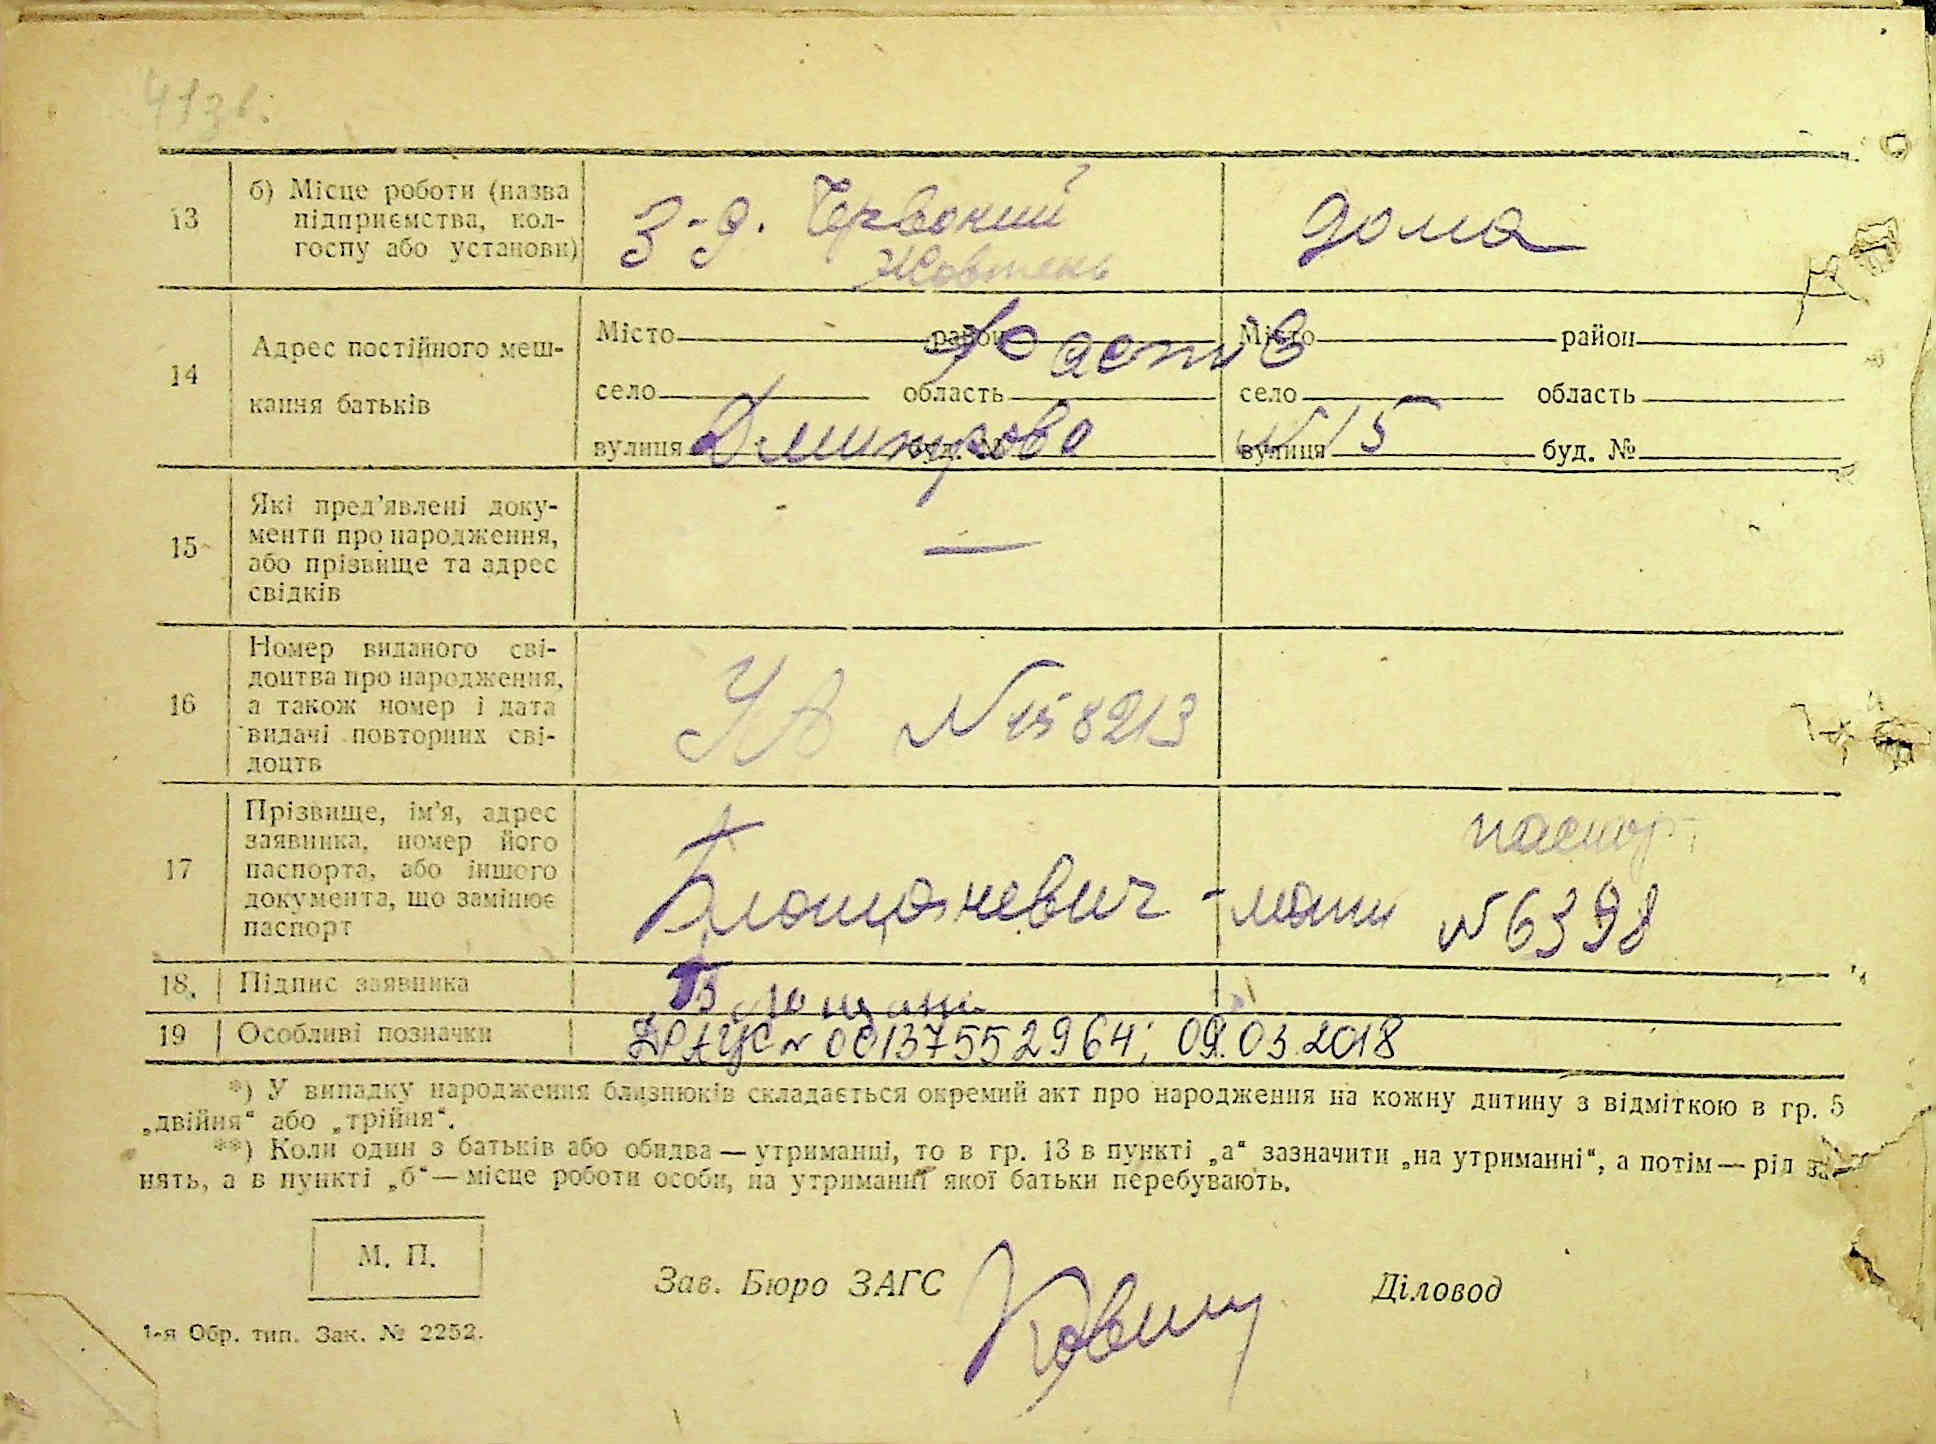 41зв.
13
б) Місце роботи (назва
підприємства, кол-
госпу або установи)
З-д. Червоний
Жовтень
дома
14
Адрес постійного меш-
кання батьків
Місто район
Місто район
Фастів
село область
село область
вулиця Димитрова буд. №
вулиця буд. №
№ 15
15
Які пред'явлені доку-
менти про народження,
або прізвище та адрес
свідків
—
16
Номер виданого сві-
доцтва про народження,
а також номер і дата
видачі повторних сві-
доцтв
УА №158213
17
Прізвище, ім'я, адрес
заявника, номер його
паспорта, або іншого
документа, що замінює
паспорт
- мати
паспорт
№ 6398
18. Підпис заявника
19 Особливі позначки
ДРАЦС № 00137552964; 09.03.2018
*) У випадку народження близнюків складається окремий акт про народження на кожну дитину з відміткою в гр. 5
„двійня“ або „трійня“.
**) Коли один з батьків або обидва — утриманці, то в гр. 13 в пункті „а“ зазначити „на утриманні“, а потім — рід за-
нять, а в пункті „б“ — місце роботи особи, на утриманні якої батьки перебувають.
М. П.
Зав. Бюро ЗАГС
Діловод
1-я Обр. тип. Зак. № 2252.